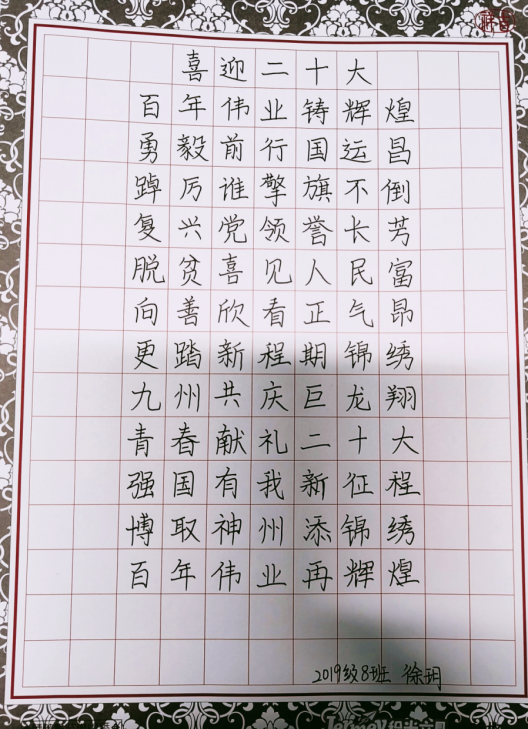 喜迎二十大
百年伟业铸辉煌
勇毅前行国运昌
踔厉谁擎旗不倒
复兴党领誉长芳
脱贫喜见人民富
向善欣看正气昂
更踏新程期锦绣
九州共庆巨龙翔
青春献礼二十大
强国有我新征程
博取神州添锦绣
百年伟业再辉煌
2019级8班 徐玥